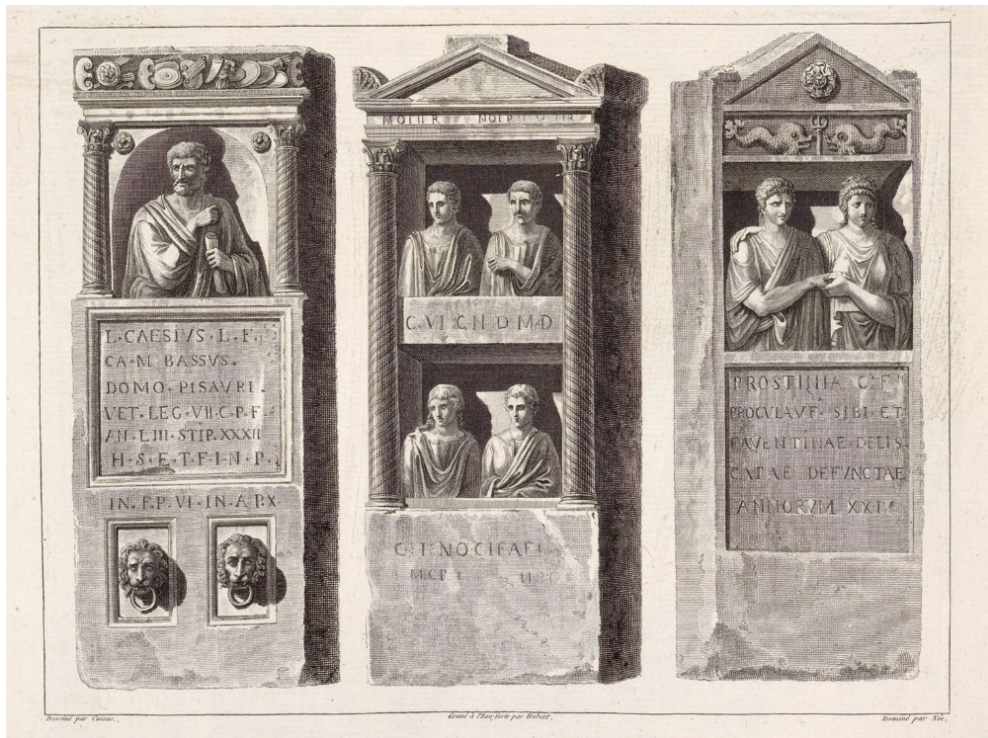 L · CAESIVS · L · F ·
CA · M BASSVS ·
DOMO · PISAVRI ·
VET · LEG · VII · C · P · F ·
AN · LIII · STIP · XXXII
H · S · E · T · F · I · N · P ·
IN · F · P · VI · IN · A · P · X
C · VI C N D M D
C · I · NOCIFAE
PROSTINIA C · F
PROCULA V · F · SIBI · ET ·
FAVENTINAE · DELIS ·
CATAE DEFVNCTAE
ANNORVM XXI
Dessiné par Cassas.
Gravé à l'Eau-forte par Hubert.
Terminé par Née.